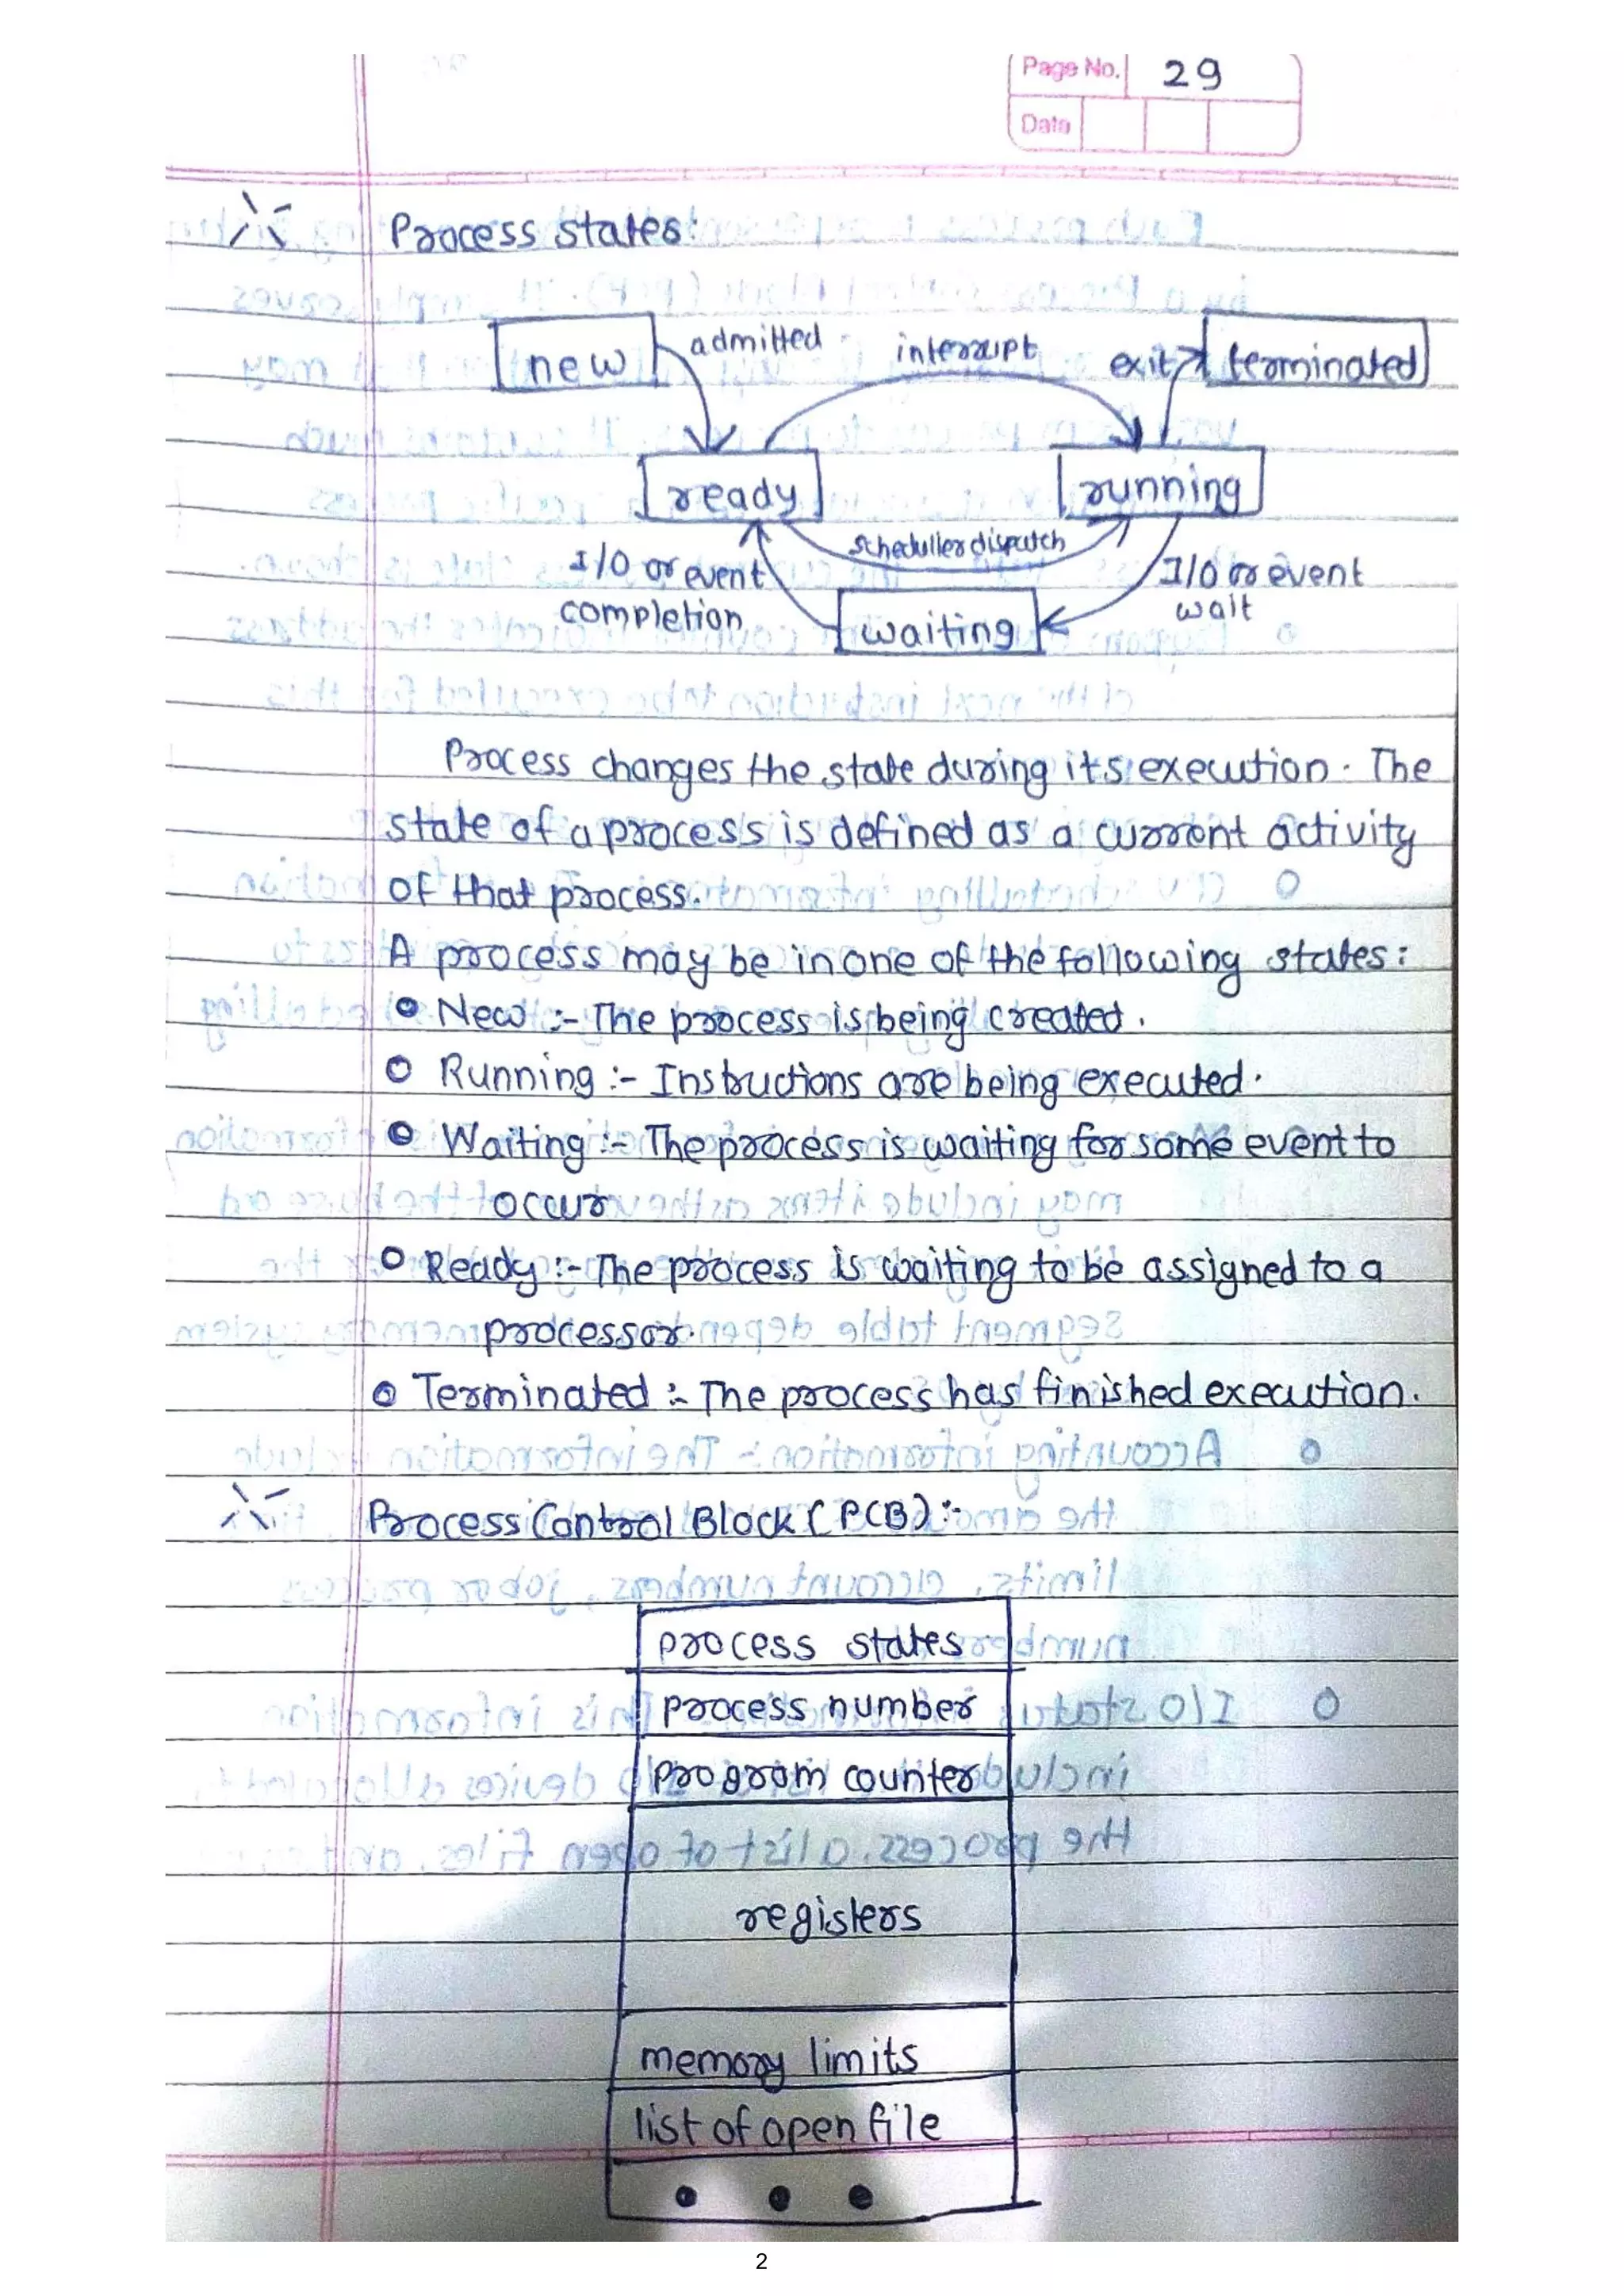 Page No. 29
Date
Process states:
new
admitted
interrupt
exit
terminated
ready
running
scheduller dispatch
I/O or event
completion
I/O or event
wait
waiting
Process changes the state during its execution. The
state of a process is defined as a current activity
of that process.
A process may be in one of the following states:
New :- The process is being created.
Running :- Instructions are being executed.
Waiting :- The process is waiting for some event to
occur
Ready :- The process is waiting to be assigned to a
processor.
Terminated :- The process has finished execution.
Process Control Block (PCB) :-
process states
process number
program counter
registers
memory limits
list of open file
2